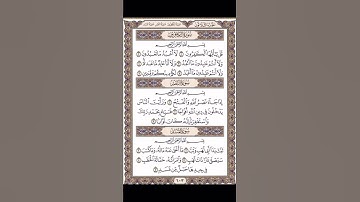 سُورَةُ الْكَافِرُونَ
بِسْمِ اللَّهِ الرَّحْمَٰنِ الرَّحِيمِ
قُلْ يَٰأَيُّهَا الْكَٰفِرُونَ ١ لَا أَعْبُدُ مَا تَعْبُدُونَ ٢
وَلَا أَنتُمْ عَٰبِدُونَ مَا أَعْبُدُ ٣ وَلَا أَنَا عَابِدٌ مَّا عَبَدتُّمْ ٤
وَلَا أَنتُمْ عَٰبِدُونَ مَا أَعْبُدُ ٥ لَكُمْ دِينُكُمْ وَلِيَ دِينِ ٦
سُورَةُ النَّصْرِ
بِسْمِ اللَّهِ الرَّحْمَٰنِ الرَّحِيمِ
إِذَا جَاءَ نَصْرُ اللَّهِ وَالْفَتْحُ ١ وَرَأَيْتَ النَّاسَ
يَدْخُلُونَ فِي دِينِ اللَّهِ أَفْوَاجًا ٢ فَسَبِّحْ بِحَمْدِ رَبِّكَ
وَاسْتَغْفِرْهُ إِنَّهُ كَانَ تَوَّابًا ٣
سُورَةُ الْمَسَدِ
بِسْمِ اللَّهِ الرَّحْمَٰنِ الرَّحِيمِ
تَبَّتْ يَدَا أَبِي لَهَبٍ وَتَبَّ ١ مَا أَغْنَىٰ عَنْهُ مَالُهُ وَمَا كَسَبَ ٢
سَيَصْلَىٰ نَارًا ذَاتَ لَهَبٍ ٣ وَامْرَأَتُهُ حَمَّالَةَ الْحَطَبِ ٤
فِي جِيدِهَا حَبْلٌ مِّن مَّسَدٍ ٥
٦٠٣